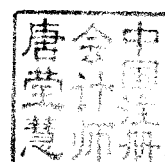 中国注册
会计师
唐莹慧